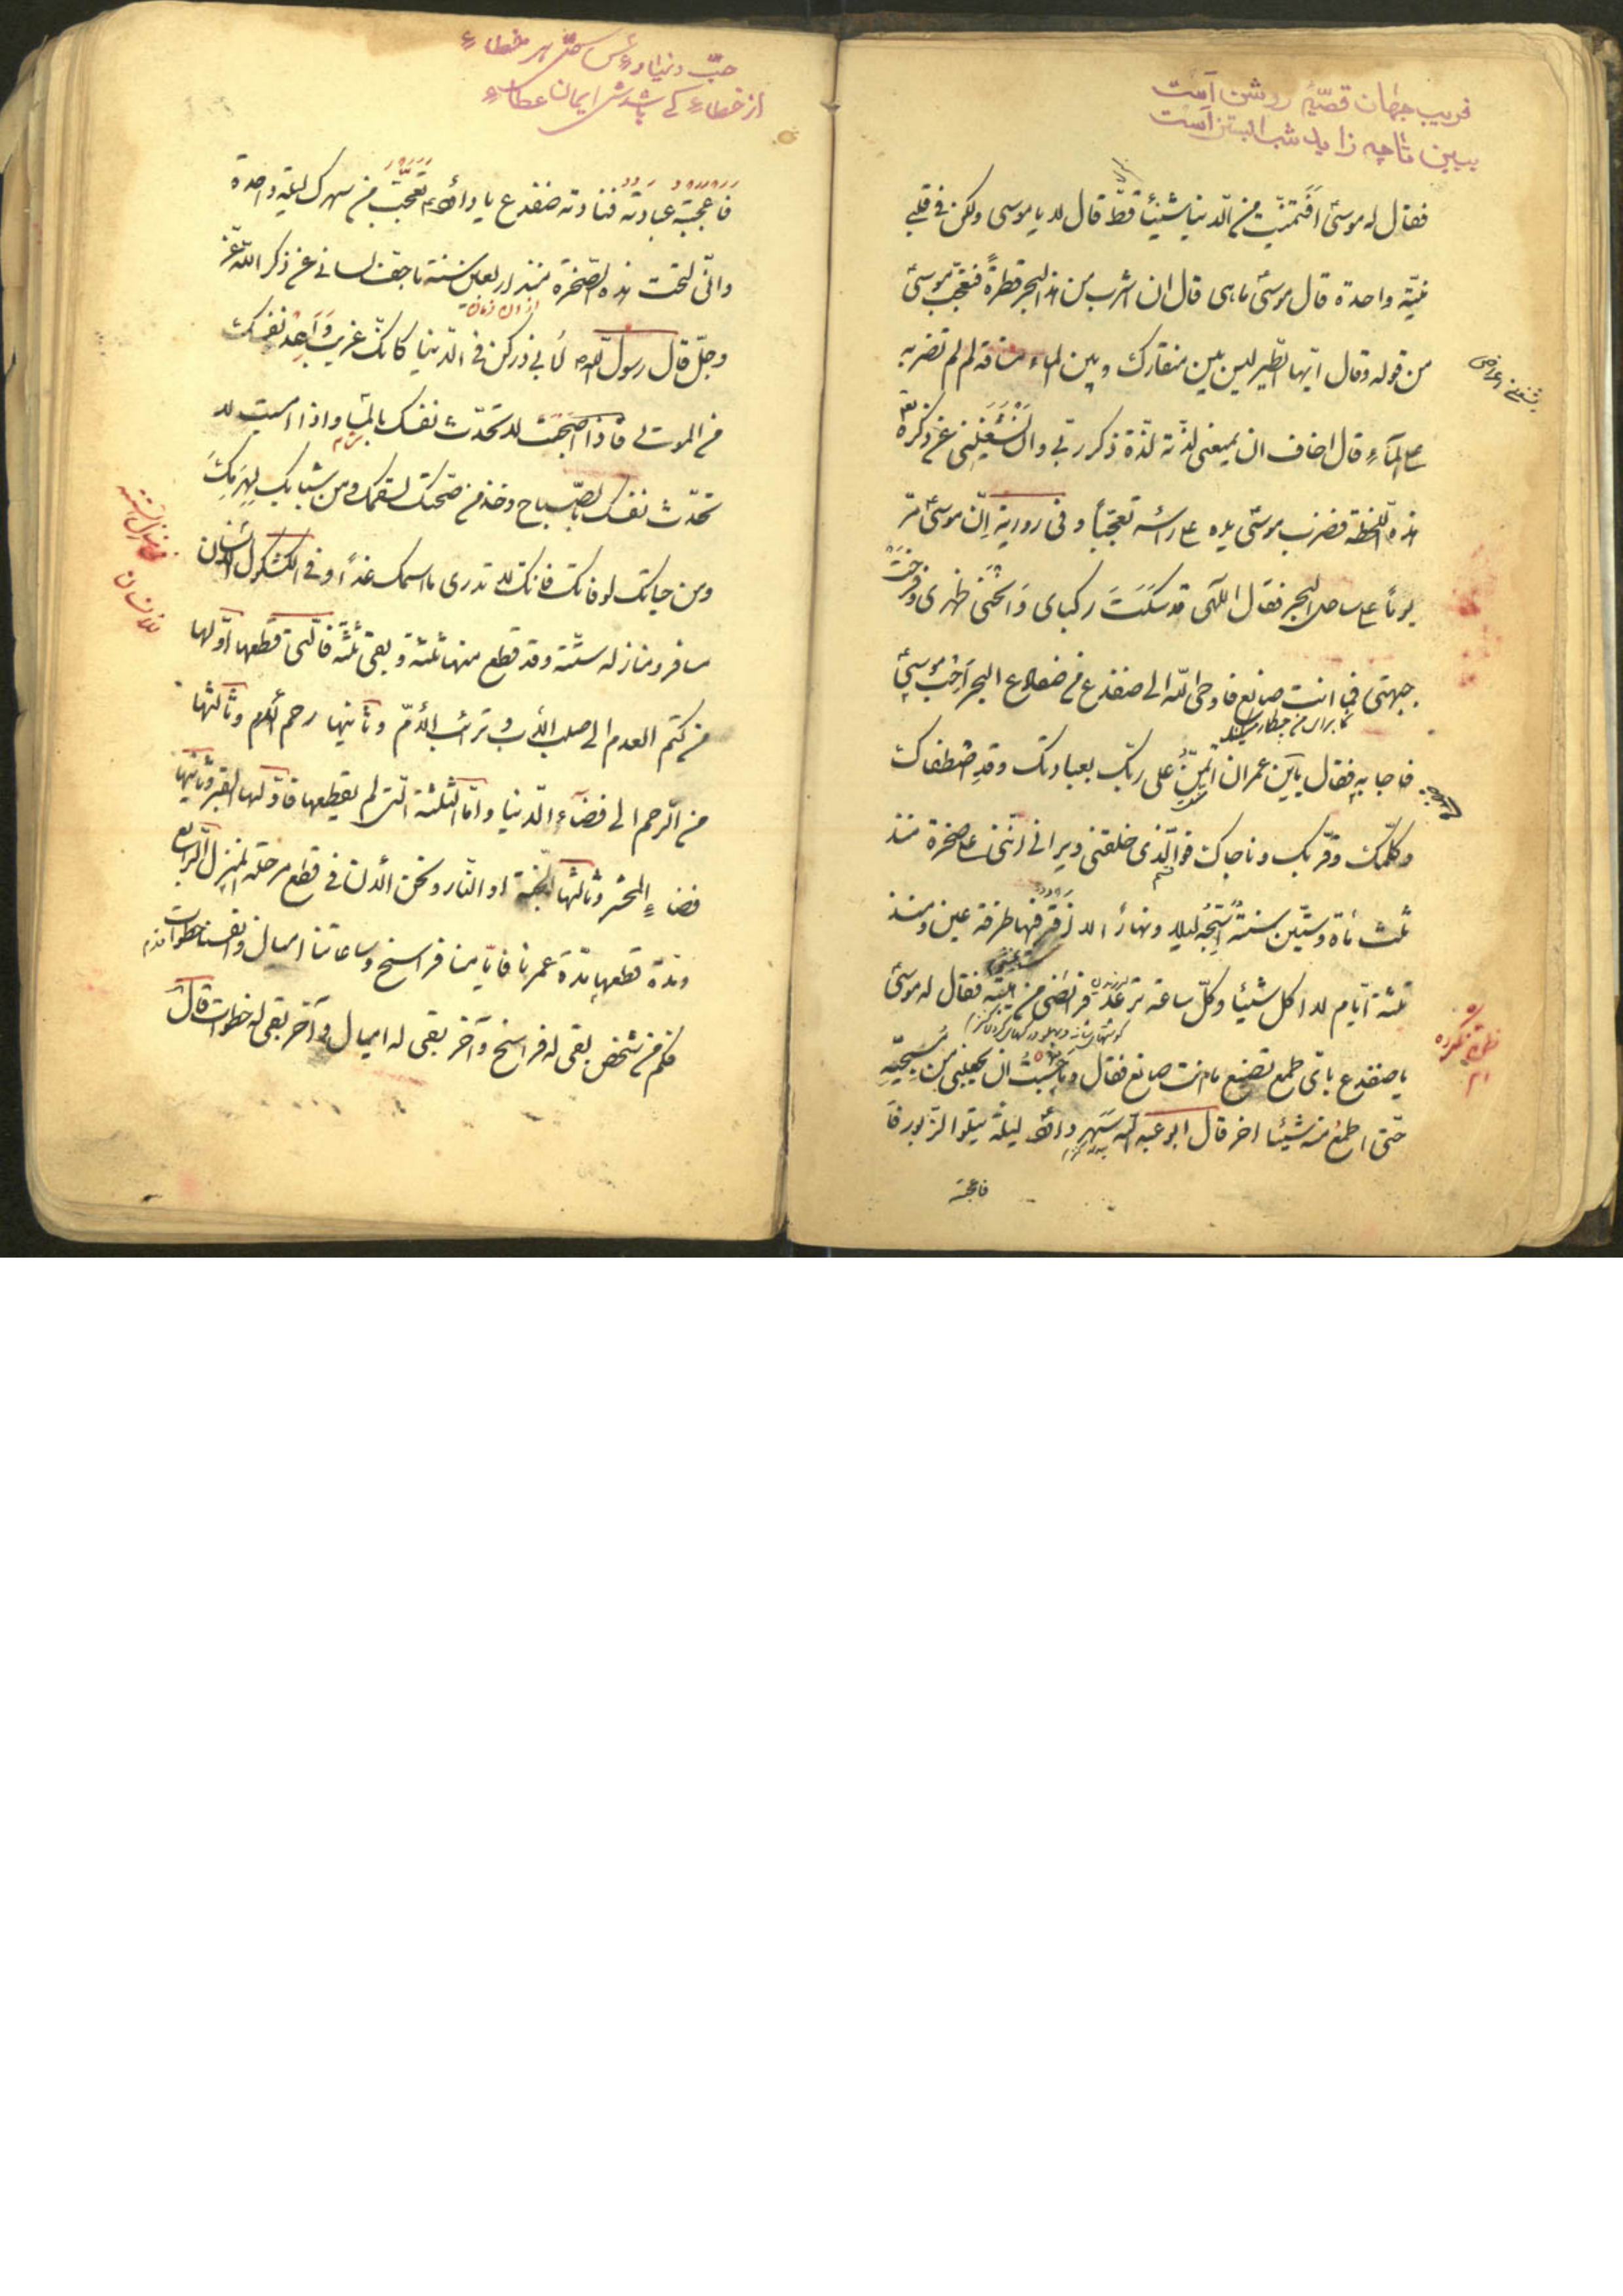 فریب جهان قصّهٔ روشن است
ببین تا چه زاید شب آبستن است
فقال له موسیٰ افتمنّیت من الدنیا شیئا قطّ قال لا یا موسی ولکن فی قلبی
نیّة واحدة قال موسیٰ ما هی قال ان اشرب من هذا البحر قطرةً فتعجّب موسیٰ
من قوله وقال ایّها الطّیر لیس بین منقارک وبین الماء مسافة لم لم تضربه
علی المآءِ قال اخاف ان یمنعنی لذّته لذّة ذکر ربّی وان تشغلنی عن ذکره
هذه اللحظة فضرب موسیٰ یده علی راسه تعجّبأ و فی روایة انّ موسیٰ مرّ
یوماً علی ساحل البحر فقال الٓهی قد سکنت رکبای وانحنی ظهری و
جبهتی فما انت صانع فاوحی الله الی ضفدع من ضفادع البحر اجب موسیٰ
فاجابه فقال یابن عمران اتمنّ علی ربّک بعبادتک وقد اصطفاک
وکلّمک وقرّبک وناجاک فوالّذی خلقنی ویرانی انّنی علی صخرة منذ
ثلث مأة وستّین سنة اسبّحه لیلا ونهارا لا افتر فیها طرفة عین ومنذ
ثلثة ایّام لا اکل شیئا وکلّ ساعة ترعد فرائصی من هیبته فقال له موسیٰ
یا ضفدع بایّ طمع تصنع ما انت صانع فقال وما حسبت ان یجعلنی من مسبّحیه
حتّی اطمع منه شیئا اخر قال ابو عبد الله سهر داود لیلة یتلوا الزبور فا
فاعجبته
حبّ دنیا رأس کلّ هر خطاء
از خطاء کی باشدش ایمان عطاء
فاعجبته عبادته فنادته ضفدع یا داود تعجّب من سهرک لیلة واحدة
وانّی لتحت هذه الصّخرة منذ اربعین سنة ما جفّ لسانی عن ذکر الله عزّ
وجلّ قال رسول الله لابی ذر کن فی الدّنیا کانّک غریب واعدد نفسک
من الموتی فاذا اصبحت لا تحدّث نفسک بالمساء واذا امسیت لا
تحدّث نفسک بالصّباح وخذ من صحّتک لسقمک ومن شبابک لهرمک
ومن حیاتک لوفاتک فانک لا تدری ما اسمک غداً وفی الکشکول الانسان
مسافر ومنازله ستّة وقد قطع منها ثلثة وبقی ثلثة فالّتی قطعها اوّلها
من کتم العدم الی صلب الأب وترائب الأمّ وثانیها رحم الأم وثالثها
من الرحم الی فضاء الدنیا وامّا الثلثة الّتی لم یقطعها فاوّلها القبر وثانیها
فضاء المحشر وثالثها الجنّة او النّار ونحن الأن فی قطع مرحلة المنزل الرابع
ومدّة قطعها مدّة عمرنا فایّامنا فراسخ وساعاتنا امیال وانفسنا خطوات
فکم من شخص بقی له فراسخ وآخر بقی له امیال وآخر بقی له خطوات قال